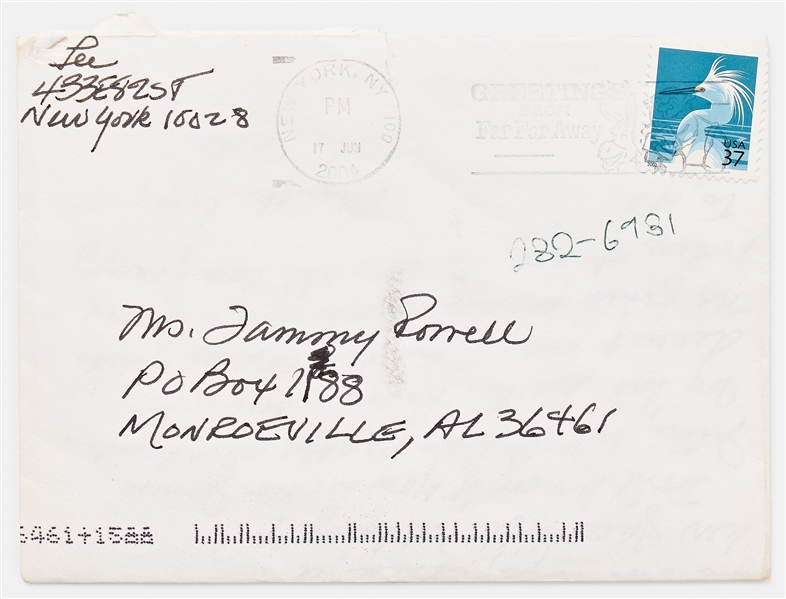 Lee
433E82ST
New York 10028
NEW YORK, NY 100
PM
17 JUN
2004
GREETINGS
FROM
Far Far Away
USA
37
282-6981
Ms. Tammy Rowell
PO Box 1588
MONROEVILLE, AL 36461
6461+1588